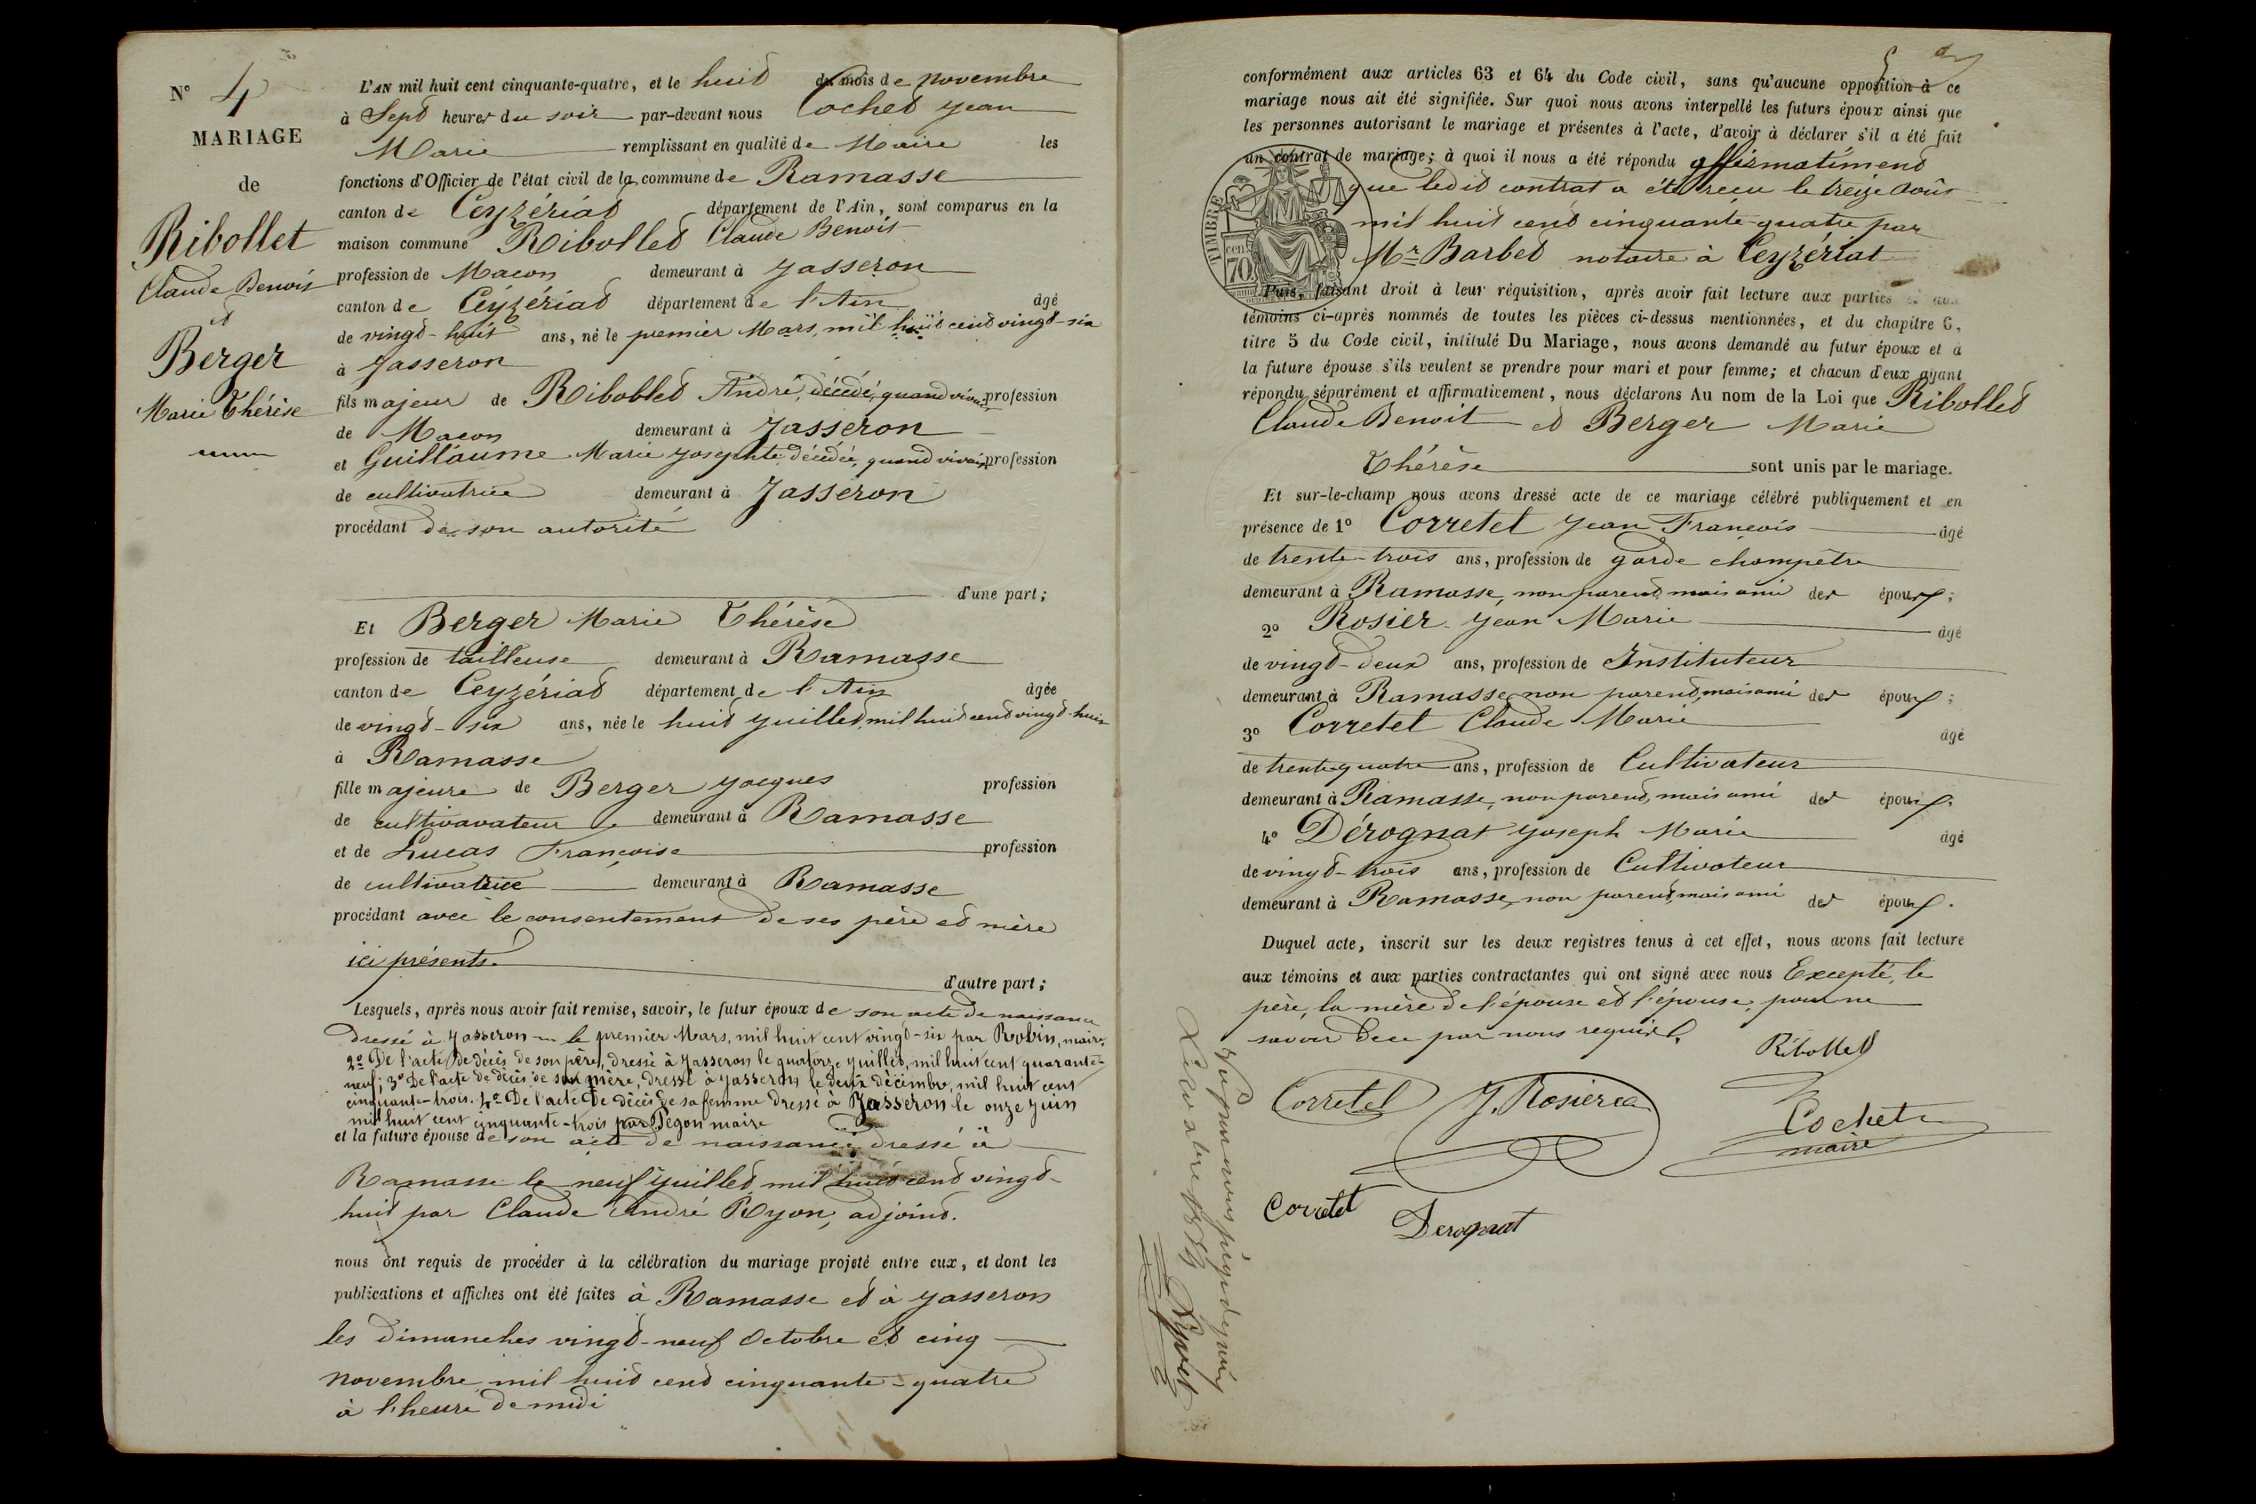 N° 4
MARIAGE
de
Ribollet
Claude Benoit
et
Berger
Marie Thérèse
L'AN mil huit cent cinquante-quatre, et le huit du mois de novembre
à Sept heures du soir par-devant nous Cochet Jean
Marie remplissant en qualité de Maire les
fonctions d'Officier de l'état civil de la commune de Ramasse
canton de Ceyzériat département de l'Ain, sont comparus en la
maison commune Ribollet Claude Benoit
profession de Maçon demeurant à Jasseron
canton de Ceyzériat département de l'Ain âgé
de vingt-huit ans, né le premier Mars, mil huit cent vingt-six
à Jasseron
fils majeur de Ribollet André, décédé, quand vivait profession
de Maçon demeurant à Jasseron
et Guillaume Marie Josephte, décédée, quand vivait profession
de cultivatrice demeurant à Jasseron
procédant de son autorité
d'une part;
Et Berger Marie Thérèse
profession de tailleuse demeurant à Ramasse
canton de Ceyzériat département de l'Ain âgée
de vingt-six ans, née le huit Juillet mil huit cent vingt-huit
à Ramasse
fille majeure de Berger Jacques profession
de cultivavateur demeurant à Ramasse
et de Lucas Françoise profession
de cultivatrice demeurant à Ramasse
procédant avec le consentement de ses père et mère
ici présents.
d'autre part;
Lesquels, après nous avoir fait remise, savoir, le futur époux de son acte de naissance
dressé à Jasseron le premier Mars, mil huit cent vingt-six par Robin, maire,
2° De l'acte de décès de son père, dressé à Jasseron le quatorze Juillet, mil huit cent quarante-
neuf; 3° De l'acte de décès de sa mère, dressé à Jasseron le deux décembre, mil huit cent
cinquante-trois. 4° De l'acte De décès de sa femme dressé à Jasseron le onze Juin
mil huit cent cinquante-trois par Pégon maire
et la future épouse de son acte de naissance dressé à
Ramasse le neuf Juillet mil huit cent vingt-
huit par Claude André Ryon, adjoint.
nous ont requis de procéder à la célébration du mariage projeté entre eux, et dont les
publications et affiches ont été faites à Ramasse et à Jasseron
les dimanches vingt-neuf Octobre et cinq
novembre mil huit cent cinquante-quatre
à l'heure de midi
conformément aux articles 63 et 64 du Code civil, sans qu'aucune opposition à ce
mariage nous ait été signifiée. Sur quoi nous avons interpellé les futurs époux ainsi que
les personnes autorisant le mariage et présentes à l'acte, d'avoir à déclarer s'il a été fait
un contrat de mariage; à quoi il nous a été répondu affirmatiment
que ledit contrat a été reçu le treize Août
mil huit cent cinquante-quatre par
Mr Barbet notaire à Ceyzériat
TIMBRE
cen
70
Puis, faisant droit à leur réquisition, après avoir fait lecture aux parties et aux
témoins ci-après nommés de toutes les pièces ci-dessus mentionnées, et du chapitre 6,
titre 5 du Code civil, intitulé Du Mariage, nous avons demandé au futur époux et à
la future épouse s'ils veulent se prendre pour mari et pour femme; et chacun d'eux ayant
répondu séparément et affirmativement, nous déclarons Au nom de la Loi que Ribollet
Claude Benoit et Berger Marie
Thérèse sont unis par le mariage.
Et sur-le-champ nous avons dressé acte de ce mariage célébré publiquement et en
présence de 1° Corretel Jean François âgé
de trente-trois ans, profession de garde champêtre
demeurant à Ramasse, non parent, mais ami des époux;
2° Rosier Jean Marie âgé
de vingt-deux ans, profession de Instituteur
demeurant à Ramasse, non parent, mais ami des époux;
3° Corretel Claude Marie âgé
de trente-quatre ans, profession de Cultivateur
demeurant à Ramasse, non parent, mais ami des époux;
4° Dérognat Joseph Marie âgé
de vingt-trois ans, profession de Cultivateur
demeurant à Ramasse, non parent, mais ami des époux.
Duquel acte, inscrit sur les deux registres tenus à cet effet, nous avons fait lecture
aux témoins et aux parties contractantes qui ont signé avec nous Excepté, le
père, la mère de l'épouse et l'épouse, pour ne
savoir de ce par nous requis.
Ribollet
Corretel
J. Rosier
Cochet
maire
Corretet
Derognat
Vu par nous